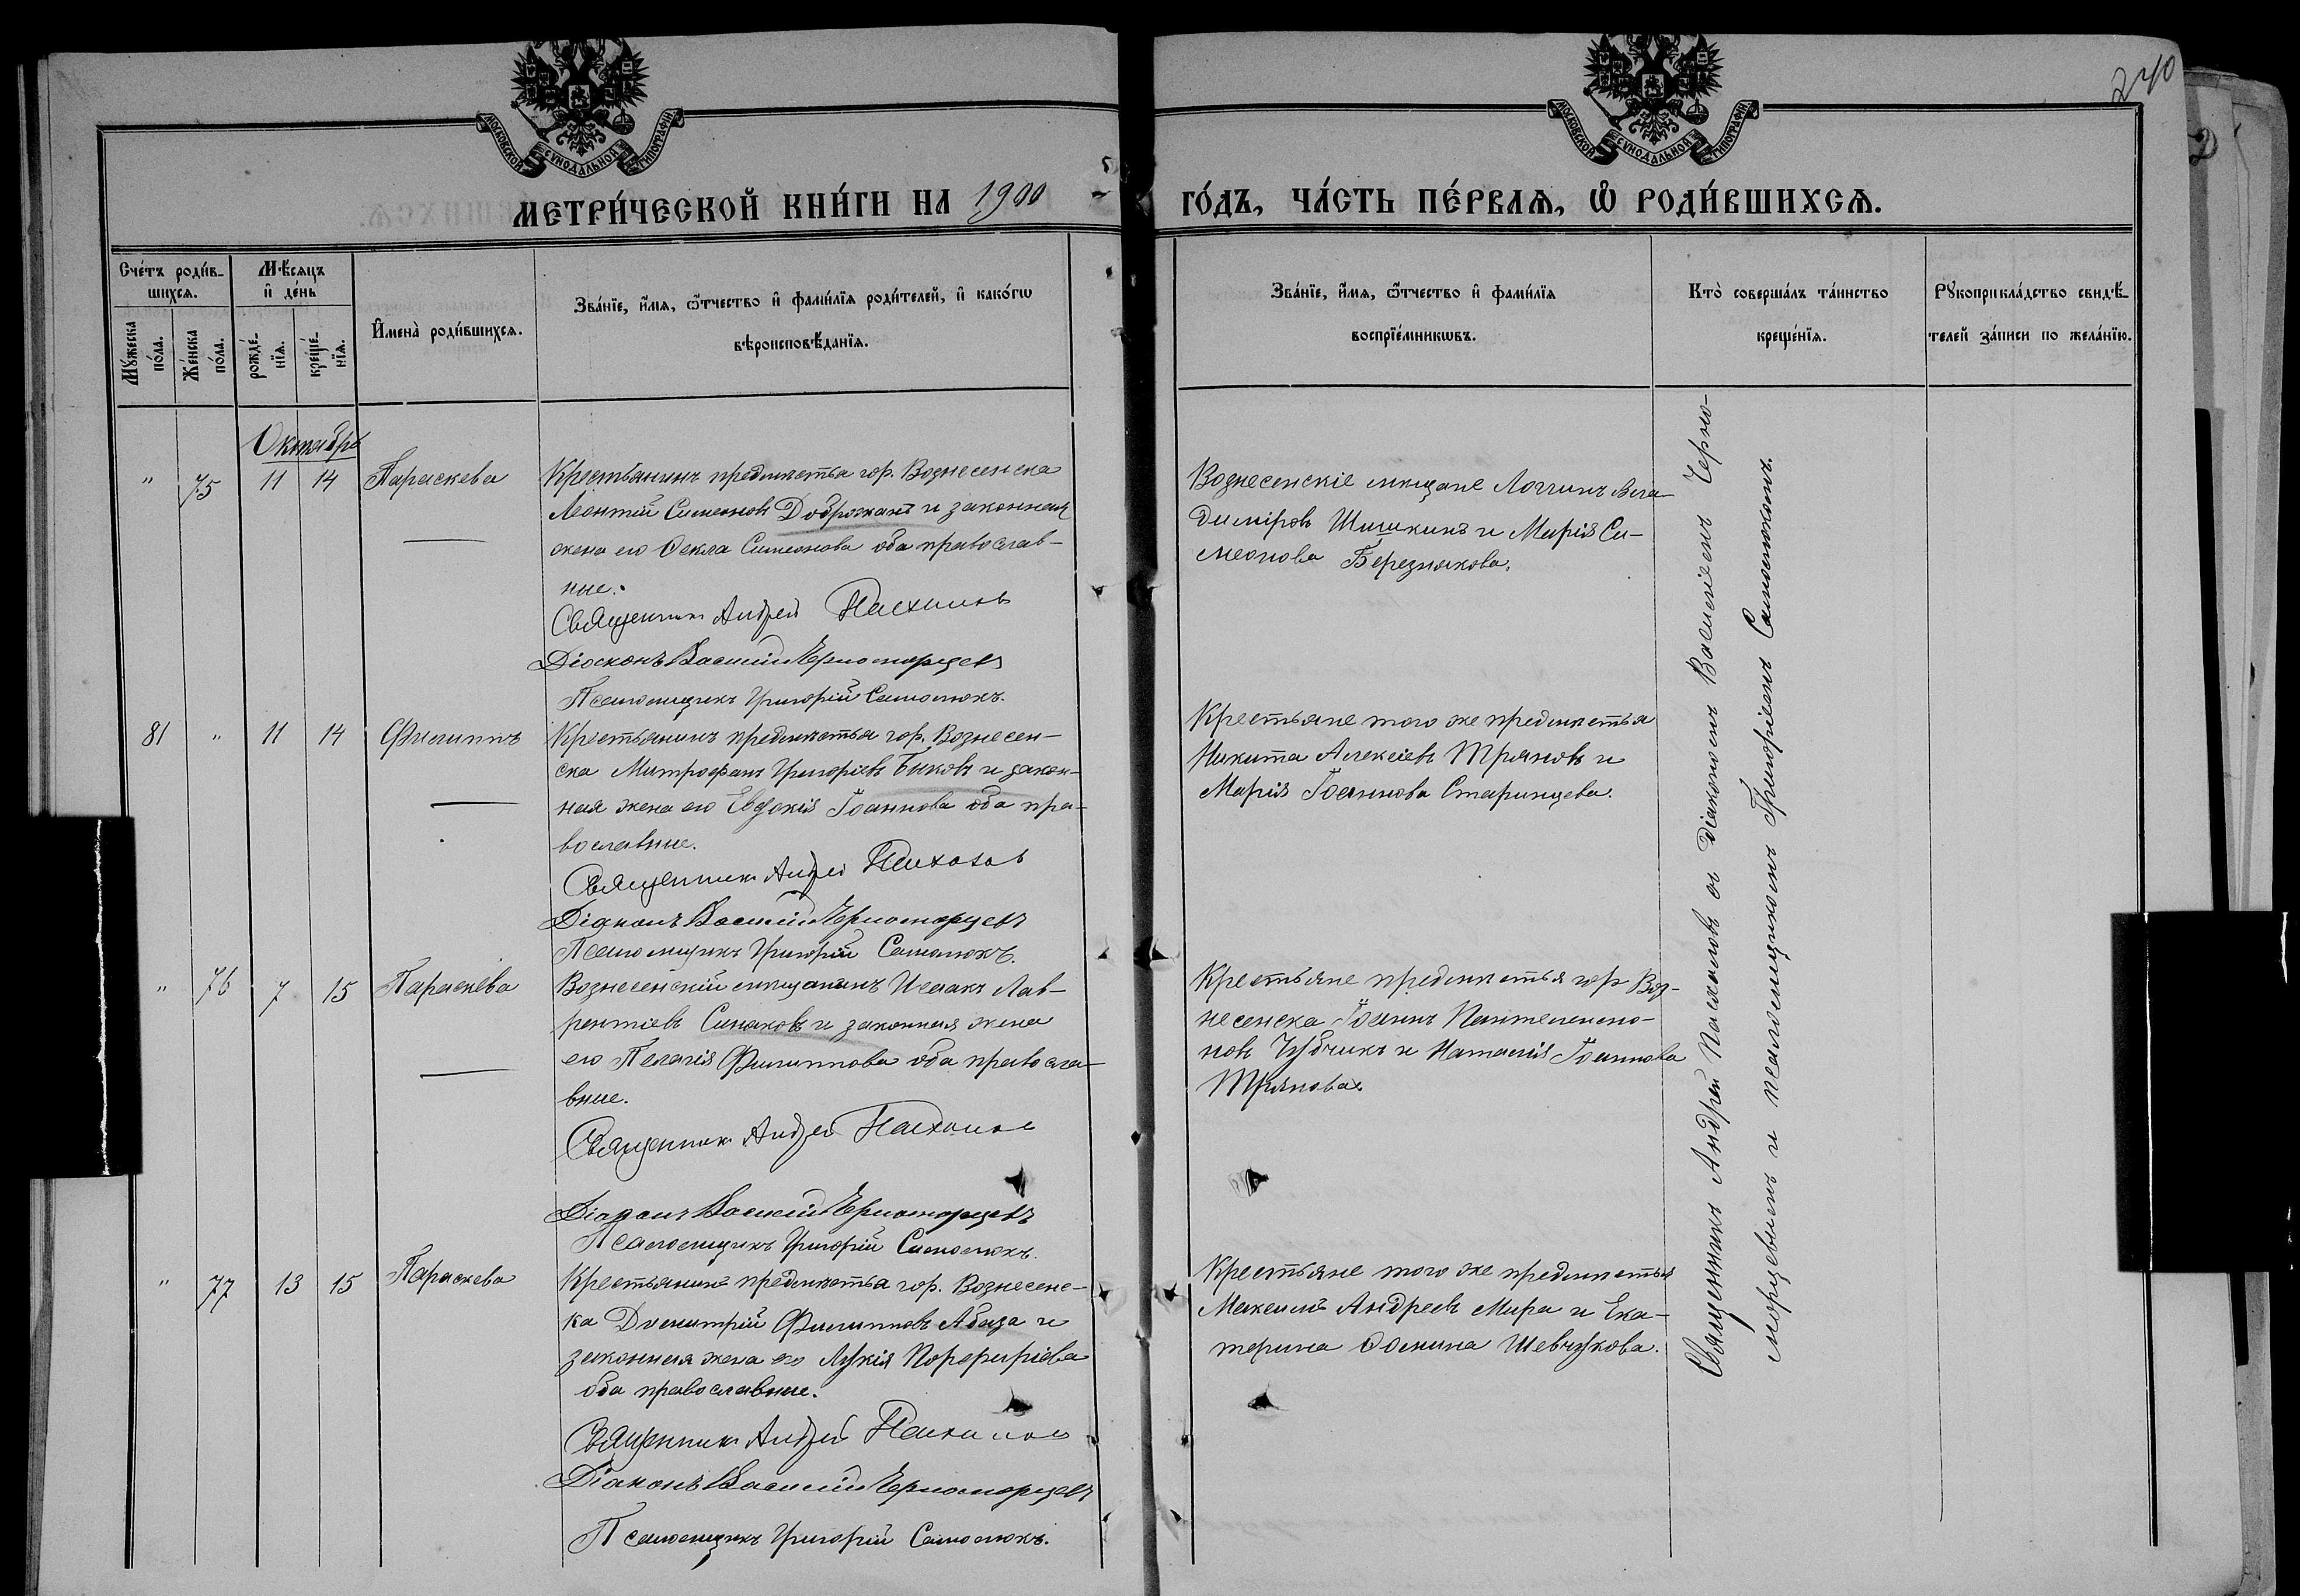 240
МОСКОВСКОЙ СѴНОДАЛЬНОЙ ТИПОГРАФІИ
МОСКОВСКОЙ СѴНОДАЛЬНОЙ ТИПОГРАФІИ
МЕТРИ́ЧЕСКОЙ КНИ́ГИ НА 1900
ГО́ДЪ, ЧА́СТЬ ПЕ́РВАѦ, Ѡ҆ РОДИ́ВШИХСѦ.
Сче́тъ роди́в-
шихсѧ.
Мꙋ́жеска по́ла.
Же́нска по́ла.
Мѣ́сѧцъ
и҆ де́нь
рожде́-
нїѧ.
креще́-
нїѧ.
И҆мена̀ роди́вшихсѧ.
Зва́нїе, и҆́мѧ, ѻ҆́тчество и҆ фами́лїѧ роди́телей, и҆ како́гѡ
вѣроисповѣ́данїѧ.
Зва́нїе, и҆́мѧ, ѻ҆́тчество и҆ фами́лїѧ
воспрїе́мникѡвъ.
Кто̀ соверша́лъ та́инство
креще́нїѧ.
Рꙋкоприкла́дство свидѣ́-
телей за́писи по жела́нїю.
Октябрь
" 75 11 14 Параскева
Крестьянинъ предмѣстья гор. Вознесенска
Леонтій Симеоновъ Доброжанъ и законная
жена его Ѳекла Симеонова оба православ-
ные.
Священникъ Андрей Пасхаловъ
Діаконъ Василій Черноморцевъ
Псаломщикъ Григорій Самотюкъ.
Вознесенскіе мѣщане Логгинъ Вла-
диміровъ Шишкинъ и Марія Си-
меонова Березнякова.
81 " 11 14 Филиппъ
Крестьянинъ предмѣстья гор. Вознесен-
ска Митрофанъ Григоріевъ Быковъ и закон-
ная жена его Евдокія Іоаннова оба пра-
вославные.
Священникъ Андрей Пасхаловъ
Діаконъ Василій Черноморцевъ
Псаломщикъ Григорій Самотюкъ.
Крестьяне того же предмѣстья
Никита Алексіевъ Тряновъ и
Марія Іоаннова Старинцева.
" 76 7 15 Параскева
Вознесенскій мѣщанинъ Исаакъ Лав-
рентіевъ Синяковъ и законная жена
его Пелагія Филиппова оба правосла-
вные.
Священникъ Андрей Пасхаловъ
Діаконъ Василій Черноморцевъ
Псаломщикъ Григорій Самотюкъ.
Крестьяне предмѣстья гор. Воз-
несенска Іоаннъ Пантелеимо-
новъ Чубчикъ и Наталія Іоаннова
Трянова.
" 77 13 15 Параскева
Крестьянинъ предмѣстья гор. Вознесенс-
ка Димитрій Филипповъ Абаза и
законная жена его Лукія Порфиріева
оба православные.
Священникъ Андрей Пасхаловъ
Діаконъ Василій Черноморцевъ
Псаломщикъ Григорій Самотюкъ.
Крестьяне того же предмѣстья
Максимъ Андреевъ Мира и Ека-
терина Ѳомина Шевчукова.
Священникъ Андрей Пасхаловъ съ Діакономъ Василіемъ Черно-
морцевымъ и псаломщикомъ Григоріемъ Самотюкомъ.